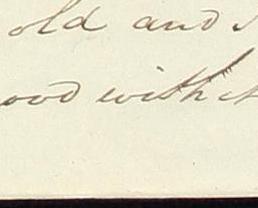 old and
ood with